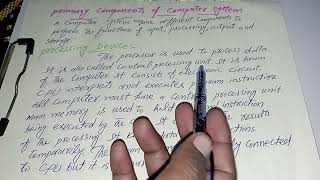 primary Components of Computer system
A Computer system require different Components to
perform the functions of input, processing, output and
storage.
processing Device:-
The processor is used to process data
It is also called Central processing unit. It is brain
of the Computer It Consists of electronic circuit.
CPU interprets and executes program instruction
All Computer must have a Central processing unit
Main memory is used to hold instruction
being executed by the results
of the processing It data
temporarily The main directly connected
to CPU but it is